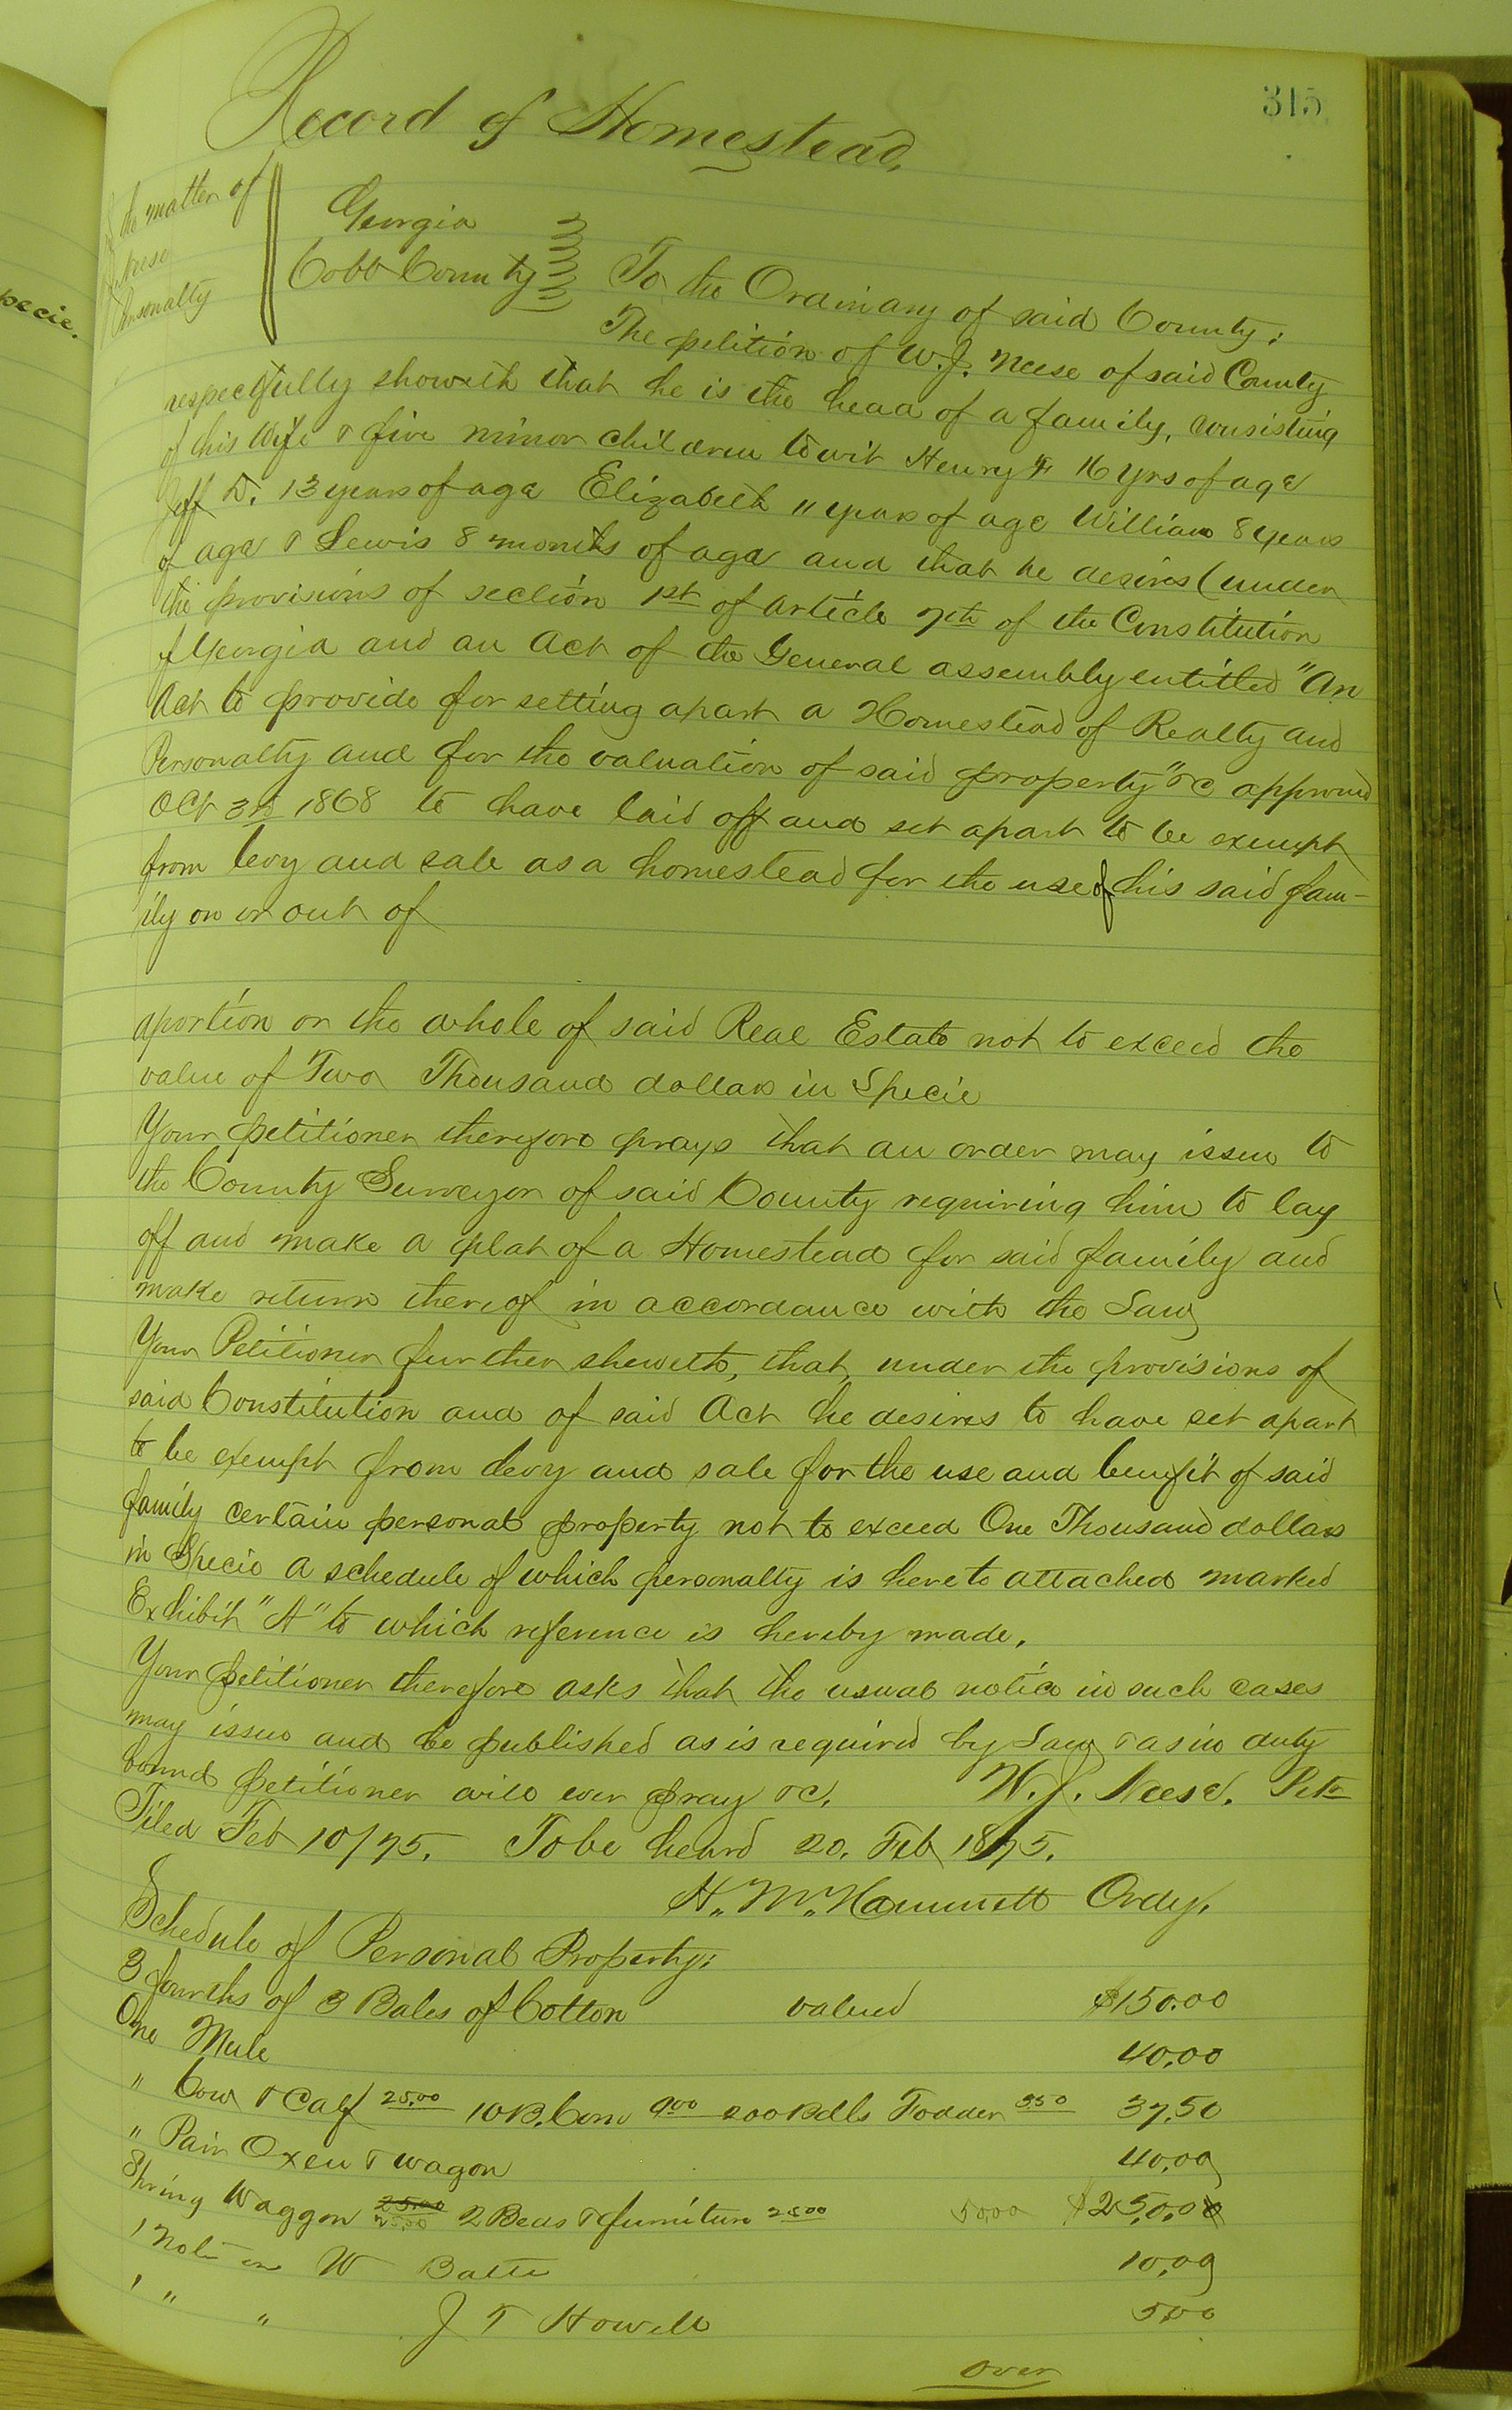 pecie.
315
Record of Homestead,
the matter of
Neese
Personalty
Georgia
Cobb County
To the Ordinary of said County;
The petition of W. J. Neese of said County
respectfully showeth that he is the head of a family, consisting
of his Wife & five minor children towit Henry 16 yrs of age
Jeff D. 13 years of age Elizabeth 11 years of age William 8 years
of age & Lewis 8 months of age and that he desires (under
the provisions of section 1st of article 7th of the Constitution
of Georgia and an Act of the General assembly entitled "An
Act to provide for setting apart a Homestead of Realty and
Personalty and for the valuation of said property" &c approved
Oct 3d 1868 to have laid off and set apart to be exempt
from levy and sale as a homestead for the use of his said fam-
ily on or out of
aportion or the whole of said Real Estate not to exceed the
value of Two Thousand dollars in Specie
Your petitioner therefore prays that an order may issue to
the County Surveyor of said County requiring him to lay
off and make a plat of a Homestead for said family and
make return thereof in accordance with the Law
Your Petitioner further sheweth, that, under the provisions of
said Constitution and of said Act he desires to have set apart
to be exempt from levy and sale for the use and benefit of said
family certain personal property not to exceed One Thousand dollars
in Specie a schedule of which personalty is hereto attached marked
Exhibit "A" to which reference is hereby made.
Your petitioner therefore asks that the usual notice in such cases
may issue and be published as is required by Law & as in duty
bound petitioner will ever pray &c. W. J. Neese. Petr
Filed Feb 10/75. To be heard 20. Feb 1875.
H. M. Hammett Ordy.
Schedule of Personal Property:
3 fourths of 3 Bales of Cotton valued $150.00
One Mule 40.00
" Cow & Calf 25.00 10 B. Corn 9.00 200 Bdls Fodder 3.50 37.50
" Pair Oxen & wagon 40.00
Spring Waggon 25.00 25.00 2 Beds & furniture 25.00 50.00 $250.00
1 Note on W Batte 10.00
1 " " J T Howell 5.00
over